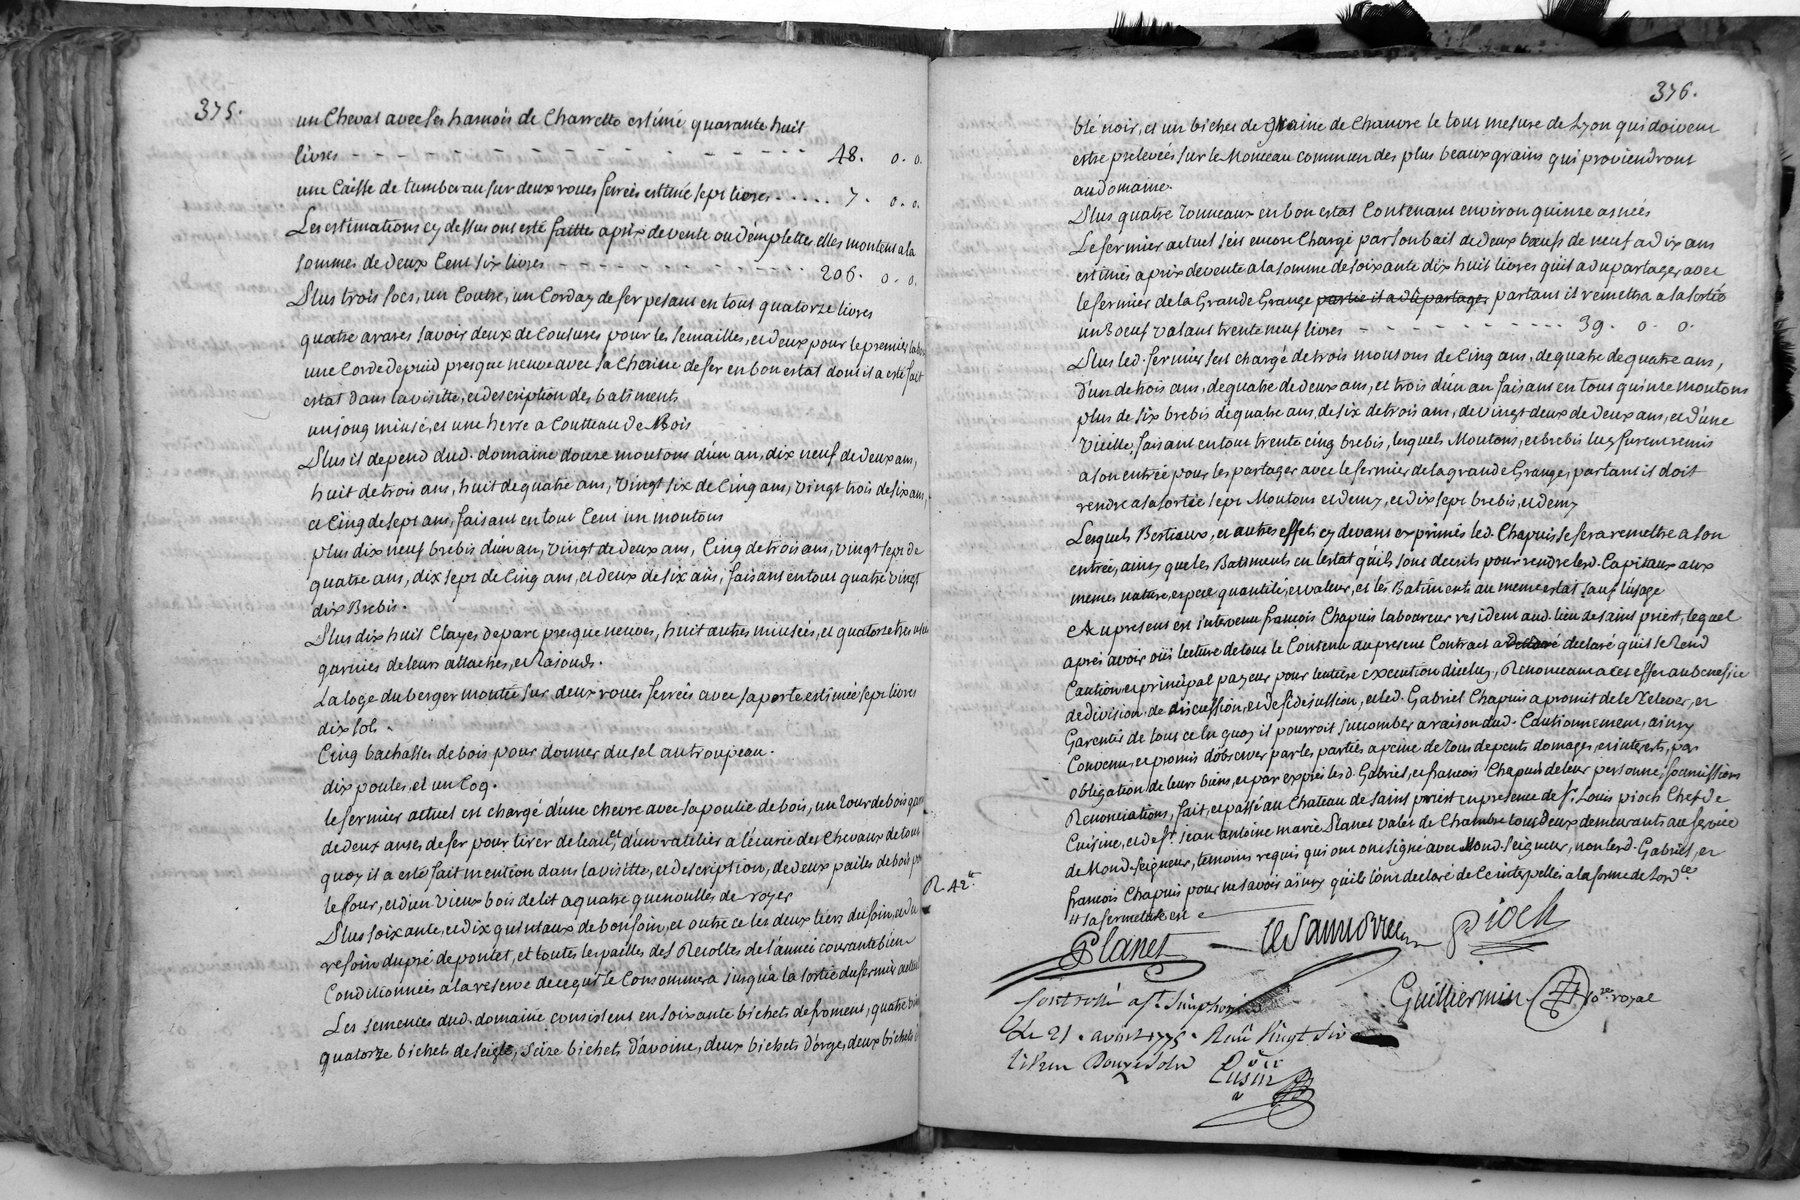 375.
un Cheval avec ses harnois de Charrette estimé quarante huit
livres - - - - - - - - - - - - - - - 48. o. o.
une Caisse de tumberau sur deux roues ferrées estimé sept livres . . . . . 7. o. o.
Les estimations cy dessus ont esté faittes aprix de vente ou d'emplettes, elles montent a la
sommes de deux Cent six livres - - - - - - - - - - 206. o. o.
Plus trois socs, un Coutre, un Corday de fer pesant en tout quatorze livres
quatre araires savoir deux de Coutures pour les semailles, et deux pour le premier labour
une Corde de puid presque neuve avec sa Chaine de fer en bon estat dont il a esté fait
estat dans la visitte, et description des batiments
un joug miusé, et une herse a Coutteau de Bois
Plus il depend dud. domaine douze moutons d'un an, dix neuf de deux ans,
huit de trois ans, huit de quatre ans, vingt six de Cinq ans, vingt trois de six ans,
et Cinq de sept ans, faisant en tout Cent un moutons
plus dix neuf brebis d'un an, vingt de deux ans, Cinq de trois ans, vingt sept de
quatre ans, dix sept de Cinq ans, et deux de six ans, faisant en tout quatre vingt
dix Brebis.
Plus dix huit Clayes de parc presque neuves, huit autres miusées, et quatorze tres usées
garnies de leurs attaches, et Rajouds.
La loge du berger montée sur deux roues ferrées avec sa porte estimée sept livres
dix sols.
Cinq bachasses de bois pour donner du sel au troupeau.
dix poules, et un Coq.
le fermier actuel est chargé d'une chevre avec sa poulie de bois, un Tour de bois garni
de deux anses de fer pour tirer de l'eau, et d'un ratelier a l'ecurie des Chevaux de tout
quoy il a esté fait mention dans la visitte, et description, de deux pailes de bois pour
le four, et d'un vieux bois de lit a quatre quenoulles de noyer
Plus soixante, et dix quintaux de bon foin, et outre ce les deux tiers du foin, et du
refoin du pré de pontet, et toutes les pailles des Recoltes de l'année courante bien
Conditionnées a la reserve de ce qui se Consommera jusqu'a la sortie du fermier actuel
Les semences dud. domaine consistent en soixante bichets de froment, quatre vingt
quatorze bichets de seigle, seize bichets d'avoine, deux bichets d'orge, deux bichets
R. 42
376.
blé noir, et un bichet de graine de Chanvre le tout mesure de Lyon qui doivent
estre prelevées sur le Monceau commun des plus beaux grains qui proviendront
au domaine.
Plus quatre Tonneaux en bon estat Contenant environ quinze asnées
Le fermier actuel s'est encore Chargé par son bail de deux boeufs de neuf a dix ans
estimés a prix de vente a la somme de soixante dix huit livres qu'il a du partager avec
le fermier de la Grande Grange partie il a du partager partant il remettra a la sortie
un Boeuf valant trente neuf livres - - - - - - - - 39. o. o.
Plus led. fermier s'est chargé de trois moutons de Cinq ans, de quatre de quatre ans,
d'un de trois ans, de quatre de deux ans, et trois d'un an faisant en tout quinze moutons
plus de six brebis de quatre ans, de six de trois ans, de vingt deux de deux ans, et d'une
vieille, faisant en tout trente cinq brebis, lesquels Moutons, et brebis luy furent remis
a son entrée pour les partager avec le fermier de la grande Grange, partant il doit
rendre a sa sortie sept Moutons et demy, et dix sept brebis, et demy
Lesquels Bestiaux, et autres effets cy devant exprimés led. Chapuis se fera remettre a son
entrée, ainsy que les Batiments en l'estat qu'ils sont decrits pour rendre led. Capitaux aux
memes nature, espece quantité, et valeur, et les Batiments au meme estat sauf l'usage
Et a present est intervenu françois Chapuis laboureur resident aud. lieu de saint priest, lequel
apres avoir oüi lecture de tout le Contenu au present Contract a declaré qu'il se Rend
Caution et principal payeur pour l'entiere execution d'iceluy, Renonceant a cet effet au benefice
de division, de discussion, et de fidejussion, et led. Gabriel Chapuis a promit de le Relever, et
Garentir de tous ce en quoy il pourroit succomber a raison dud. Cautionnement, ainsy
Convenu, et promis d'observer par les parties a peine de Tous depents domages, et interests, par
obligation de leur biens, et par exprés led. Gabriel, et françois Chapuis de leur personne, soumissions
Renonciations, fait, et passé au Chateau de saint priest en presence de Sr. Louis pioch Chef de
Cuisine, et de Sr. jean antoine marie Planet valet de Chambre tous deux demeurants au service
de Mond. Seigneur, temoins requis qui ont ont signé avec Mond. Seigneur, non led. Gabriel, et
françois Chapuis pour ne savoir ainsy qu'ils l'ont declaré de Ce interpellés a la forme de l'ord.ce
Planet
pioch
Guilliermin
No.re royal
Controllé a St. Simphorien
Le 21. avril 1775. Reçu Vingt six